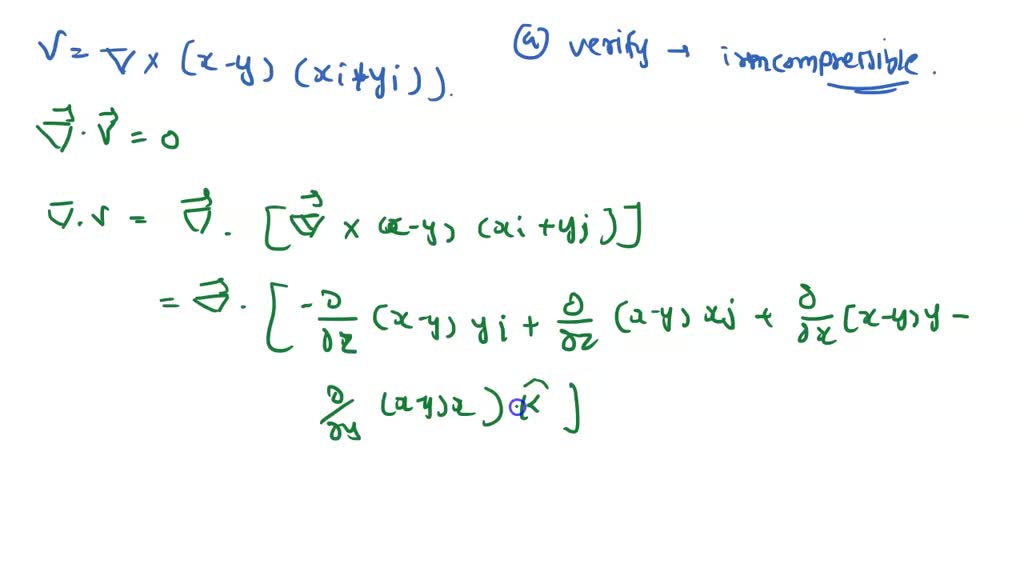 V = ∇ × (x-y) (xi+yj)).
ⓐ verify → irrncompressible.
∇⃗ · V⃗ = 0
∇ · v = ∇⃗ . [∇⃗ × (x-y) (xi + yj)]
= ∇⃗ · [ -∂/∂z (x-y) yi + ∂/∂z (x-y) xj + ∂/∂x [x-y) y -
∂/∂y (x-y) x ) k̂ ]